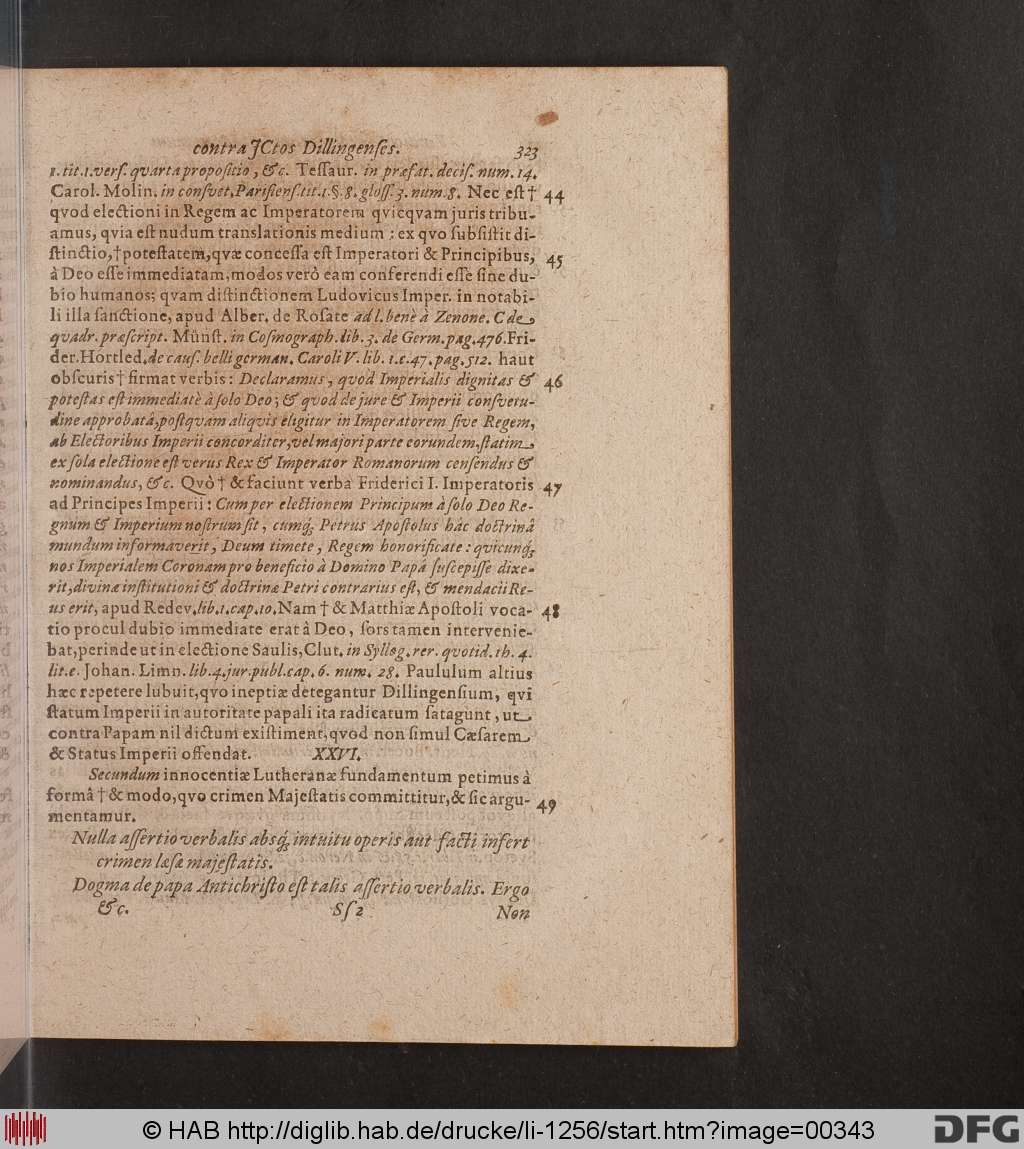 contra JCtos Dillingenses. 323
1. tit. 1. vers. qvarta propositio, &c. Tessaur. in præfat. decis. num. 14.
Carol. Molin. in consvet. Parisiens. tit. 1. §. 8. gloss. 3. num. 8. Nec est † 44
qvod electioni in Regem ac Imperatorem qvicqvam juris tribu-
amus, qvia est nudum translationis medium: ex qvo subsistit di-
stinctio, † potestatem, qvæ concessa est Imperatori & Principibus, 45
à Deo esse immediatam, modos verò eam conferendi esse sine du-
bio humanos; qvam distinctionem Ludovicus Imper. in notabi-
li illa sanctione, apud Alber. de Rosate ad l. benè à Zenone. C de
qvadr. præscript. Münst. in Cosmograph. lib. 3. de Germ. pag. 476. Fri-
der. Hortled. de caus. belli german. Caroli V. lib. 1. c. 47. pag. 512. haut
obscuris † firmat verbis: Declaramus, qvod Imperialis dignitas & 46
potestas est immediatè à solo Deo; & qvod de jure & Imperii consvetu-
dine approbatâ, postqvam aliqvis eligitur in Imperatorem sive Regem,
ab Electoribus Imperii concorditer, vel majori parte eorundem, statim
ex sola electione est verus Rex & Imperator Romanorum censendus &
nominandus, &c. Qvò † & faciunt verba Friderici I. Imperatoris 47
ad Principes Imperii: Cum per electionem Principum à solo Deo Re-
gnum & Imperium nostrum sit, cumq; Petrus Apostolus hâc doctrinâ
mundum informaverit, Deum timete, Regem honorificate: qvicunq;
nos Imperialem Coronam pro beneficio à Domino Papâ suscepisse dixe-
rit, divinæ institutioni & doctrinæ Petri contrarius est, & mendacii Re-
us erit, apud Redev. lib. 1. cap. 10. Nam † & Matthiæ Apostoli voca- 48
tio procul dubio immediate erat â Deo, sors tamen intervenie-
bat, perinde ut in electione Saulis, Clut. in Sylleg. rer. quotid. th. 4.
lit. e. Johan. Limn. lib. 4. jur. publ. cap. 6. num. 28. Paululum altius
hæc repetere lubuit, qvo ineptiæ detegantur Dillingensium, qvi
statum Imperii in autoritate papali ita radicatum satagunt, ut
contra Papam nil dictum existiment, qvod non simul Cæsarem
& Status Imperii offendat. XXVI.
Secundum innocentiæ Lutheranæ fundamentum petimus à
formâ † & modo, qvo crimen Majestatis committitur, & sic argu- 49
mentamur.
Nulla assertio verbalis absq; intuitu operis aut facti infert
crimen læsæ majestatis.
Dogma de papa Antichristo est talis assertio verbalis. Ergo
&c. Ss 2 Non
© HAB http://diglib.hab.de/drucke/li-1256/start.htm?image=00343
DFG